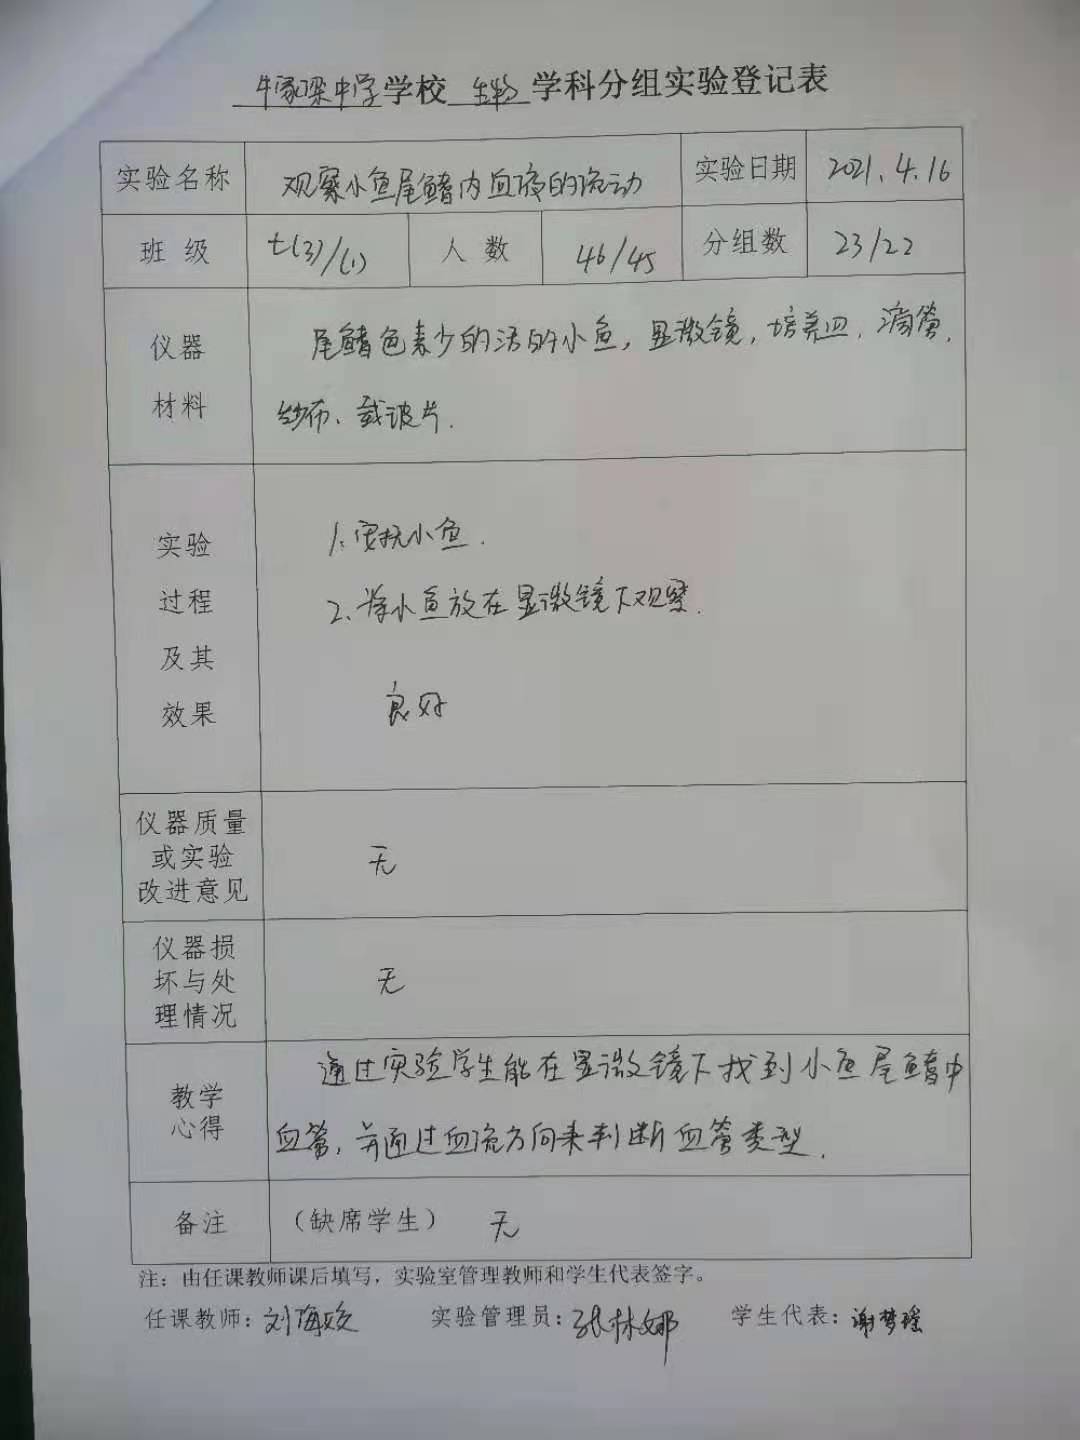 牛家梁中学学校 生物 学科分组实验登记表
实验名称 观察小鱼尾鳍内血液的流动 实验日期 2021.4.16
班级 七(3)/(1) 人数 46/45 分组数 23/22
仪器
材料
尾鳍色素少的活的小鱼，显微镜，培养皿，滴管，
纱布、载玻片.
实验
过程
及其
效果
1、安抚小鱼.
2、将小鱼放在显微镜下观察.
良好
仪器质量
或实验
改进意见
无
仪器损
坏与处
理情况
无
教学
心得
通过实验学生能在显微镜下找到小鱼尾鳍中
血管，并通过血流方向来判断血管类型.
备注 （缺席学生） 无
注：由任课教师课后填写，实验室管理教师和学生代表签字。
任课教师：刘海姣 实验管理员：张林娜 学生代表：谢梦瑶